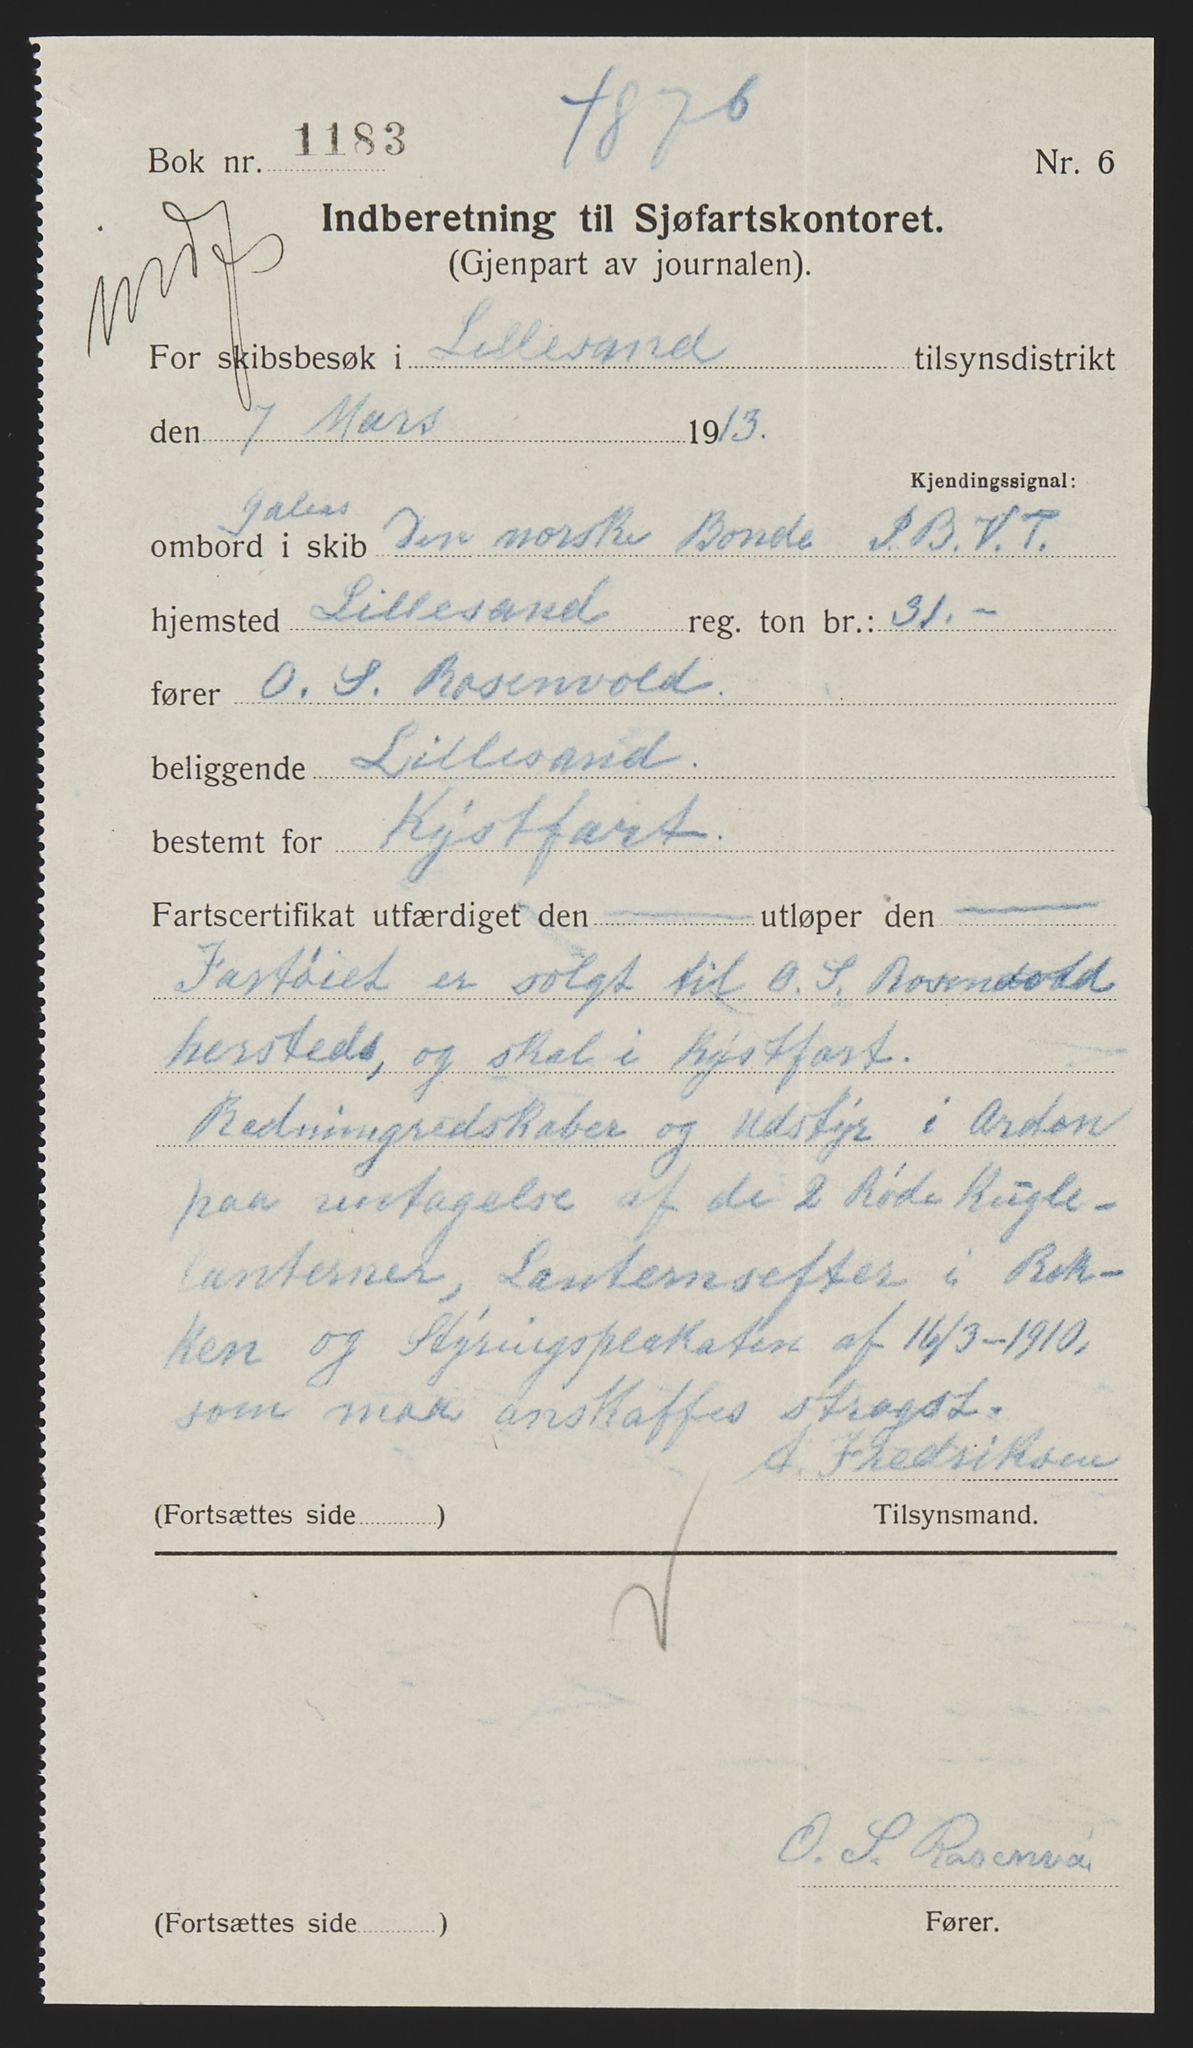 1876
Bok nr. 1183
Nr. 6
Indberetning til Sjøfartskontoret.
(Gjenpart av journalen).
For skibsbesøk i Lillesand tilsynsdistrikt
den 7 Mars 1913.
Kjendingssignal:
Galeas
ombord i skib Den norske Bonde I. B. V. T.
hjemsted Lillesand reg. ton br.: 31.-
fører O. S. Rosenvold.
beliggende Lillesand.
bestemt for Kystfart.
Fartscertifikat utfærdiget den — utløper den —
Fartöiet er solgt til O. S. Rosenvold
hersteds, og skal i Kystfart.
Redningredskaber og Udstyr i Orden
paa untagelse af de 2 Röde Kugle-
lanterner, Lanternsefter i Bak-
ken og Styringsplakaten af 16/3-1910,
som maa anskaffes stragst.
A. Fredriksen
(Fortsættes side )
Tilsynsmand.
O. S. Rosenvo
(Fortsættes side )
Fører.